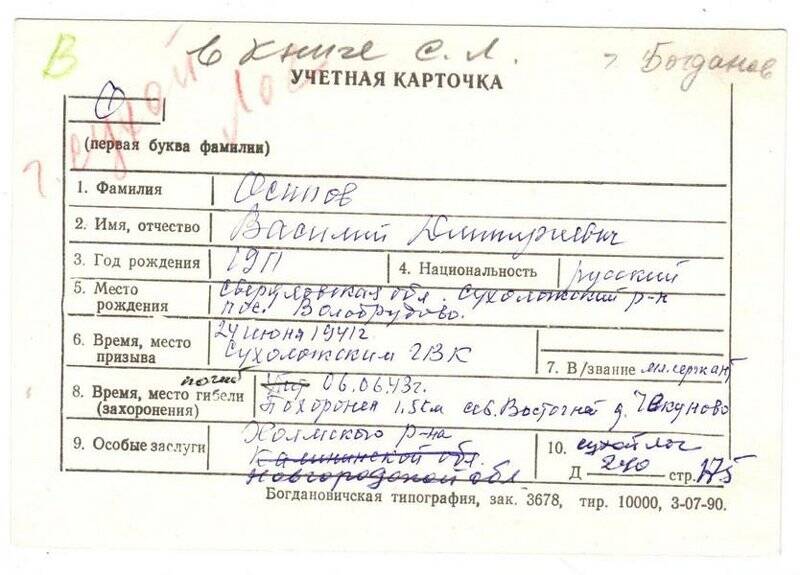 В
в Книге С. Л.
г. Богданов
г. Сухой Лог
УЧЕТНАЯ КАРТОЧКА
О
(первая буква фамилии)
1. Фамилия Осипов
2. Имя, отчество Василий Дмитриевич
3. Год рождения 1911 4. Национальность русский
5. Место рождения Свердловская обл. Сухоложский р-н
пос. Валобруdово.
6. Время, место призыва 24 июня 1941г.
Сухоложским ГВК
7. В/звание мл. сержант
погиб
8. Время, место гибели (захоронения) 06.06.43г.
Похоронен 1,5 км сев. Восточней д. Чекуново
9. Особые заслуги Холмского р-на
Калининской обл
Новгородской обл
10. сухой лог
Д 240 стр. 175
Богдановичская типография, зак. 3678, тир. 10000, 3-07-90.